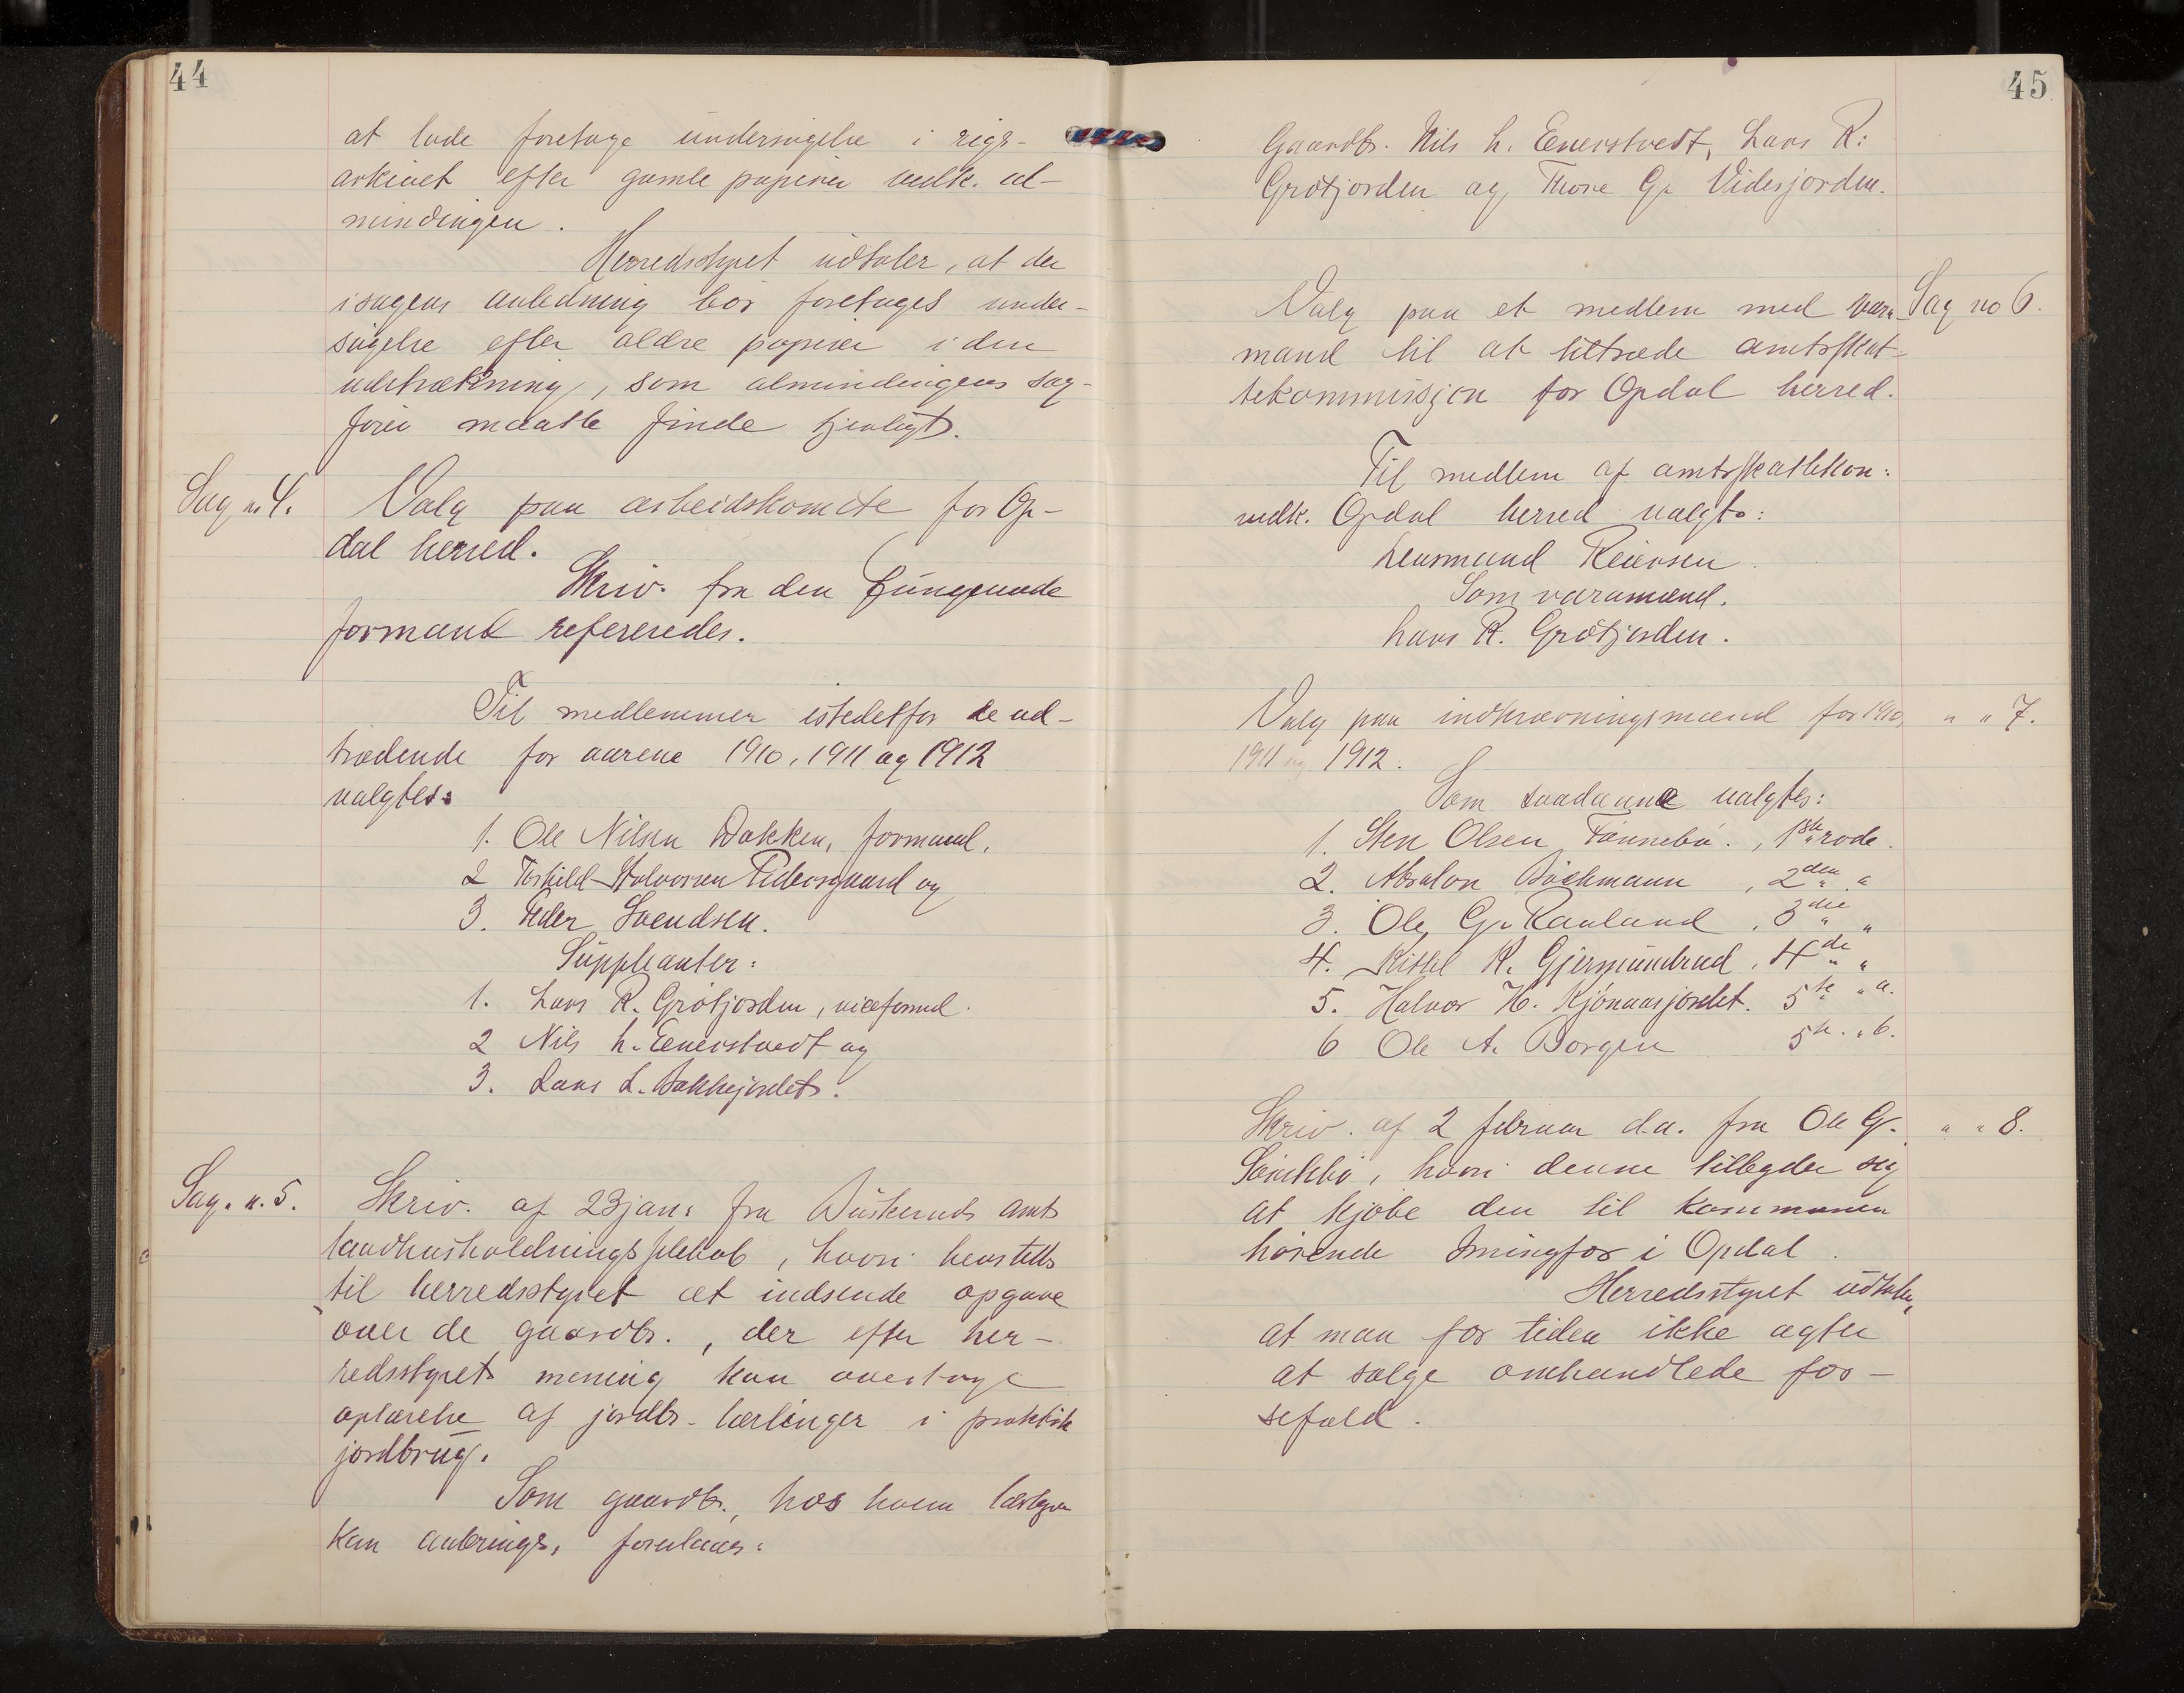 44
at lade foretage undersøgelse i rigs-
arkivet efter gamle papirer vedk. al-
mindingen.
Herredstyret udtaler, at der
i sagens anledning bør foretages under-
søgelse efter ældre papirer i den
udstrækning, som almindingens sag-
fører maatte finde tjenligt.
Sag n. 4.
Valg paa arbeidskomite for Op-
dal herred.
Skriv. fra den fungerende
formand refereredes.
Til medlemmer istedetfor de ud-
trædende for aarene 1910, 1911 og 1912
valgtes:
1. Ole Nilsen Bakken, formand,
2 Torkild Halvorsen og
3. Peder Svendsen.
Suppleanter:
1. Lars R. Grøtjorden, viceformd.
2 Nils L. Enerstvedt og
3. Lars L. Bakkejordet.
Sag. n. 5.
Skriv. af 23 jan: fra Buskeruds amts
landhusholdningsselskab, hvori henstilles
til herredsstyret at indsende opgave
over de gaardbr., der efter her-
redsstyrets mening kan overtage
oplærelse af jordbr. lærlinger i praktisk
jordbrug.
Som gaardbr., hos hvem lærlinger
kan anbringes, foreslaaes:
45
Gaardbr. Nils L. Enerstvedt, Lars R:
Grøtjorden og Thore G. Videsjorden.
Sag no 6.
Valg paa et medlem med vara-
mand til at tiltræde amtsskat-
tekommissjon for Opdal herred.
Til medlem af amtsskattekom:
vedk. Opdal herred valgts:
Lensmand Reiersen.
Som varamand.
Lars R. Grøtjorden.
" " 7.
Valg paa indkrævningsmænd for 1910,
1911 og 1912.
Som saadanne valgtes:
1. Sten Olsen Tønnebø., 1ste rode.
2. Absalon Bøckmann, 2den " "
3. Ole G. Rauland, 3die " "
4. Kittil K. Gjermundrud, 4de " "
5. Halvor H. Kjønaasjordet. 5te " a.
6 Ole A. Borgen 5te. " b.
" " 8.
Skriv. af 2 februar d.a. fra Ole G.
hvori denne tilbyder sig
at kjøbe den til kommunen
hørende i Opdal.
Herredsstyret udtaler,
at man for tiden ikke agter
at sælge omhandlede for-
sefald.